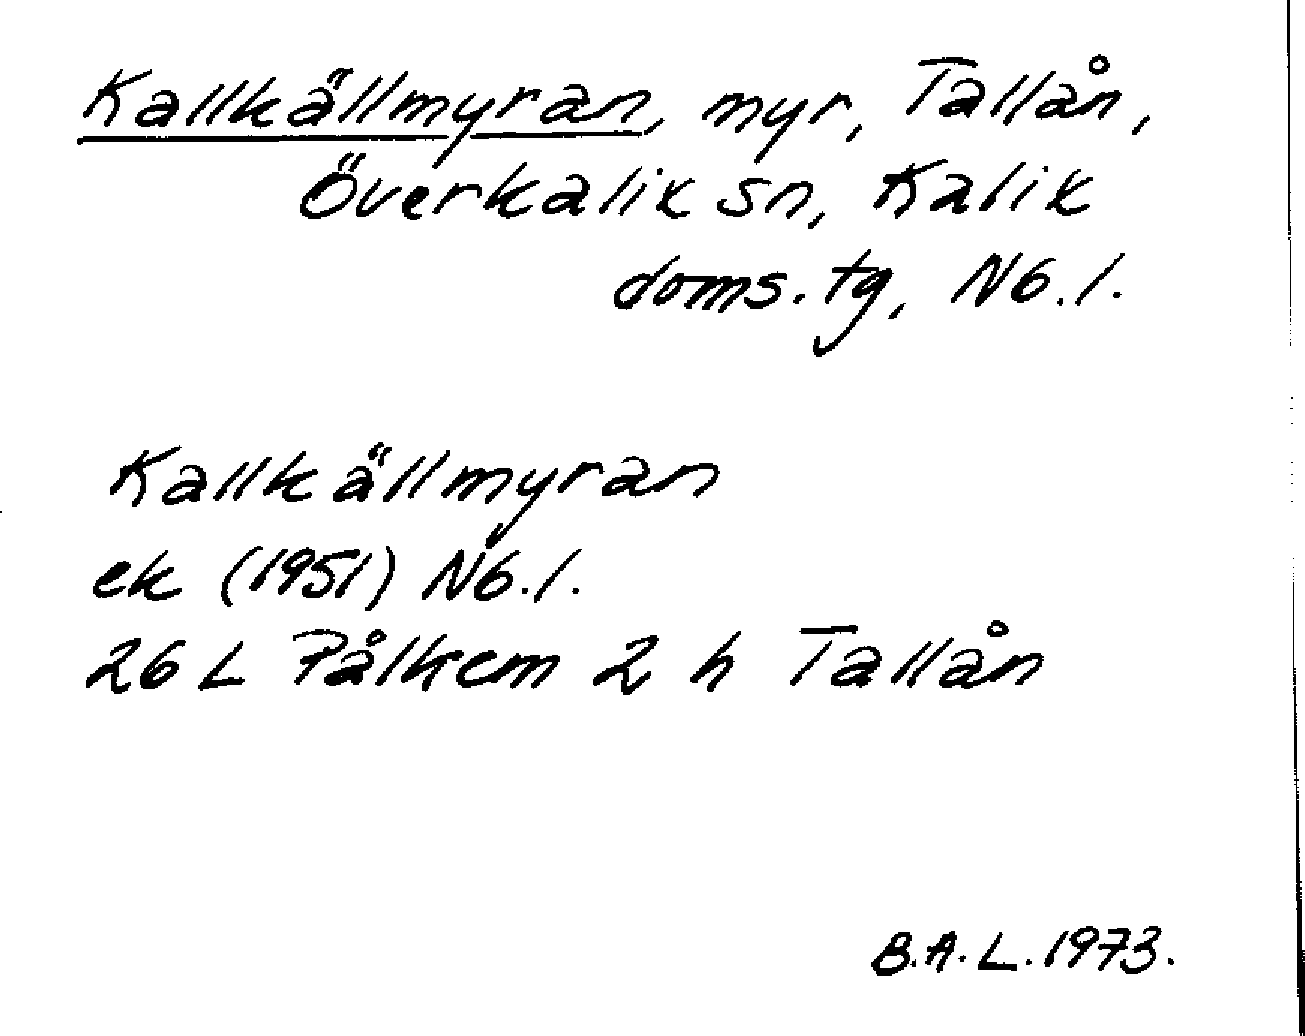 Kallkällmyran, myr, Tallån,
Överkalix sn, Kalix
doms. tg, Nb. l.
Kallkällmyran
ek (1951) Nb. l.
26 L Pålkem 2 h Tallån
B.A.L. 1973.